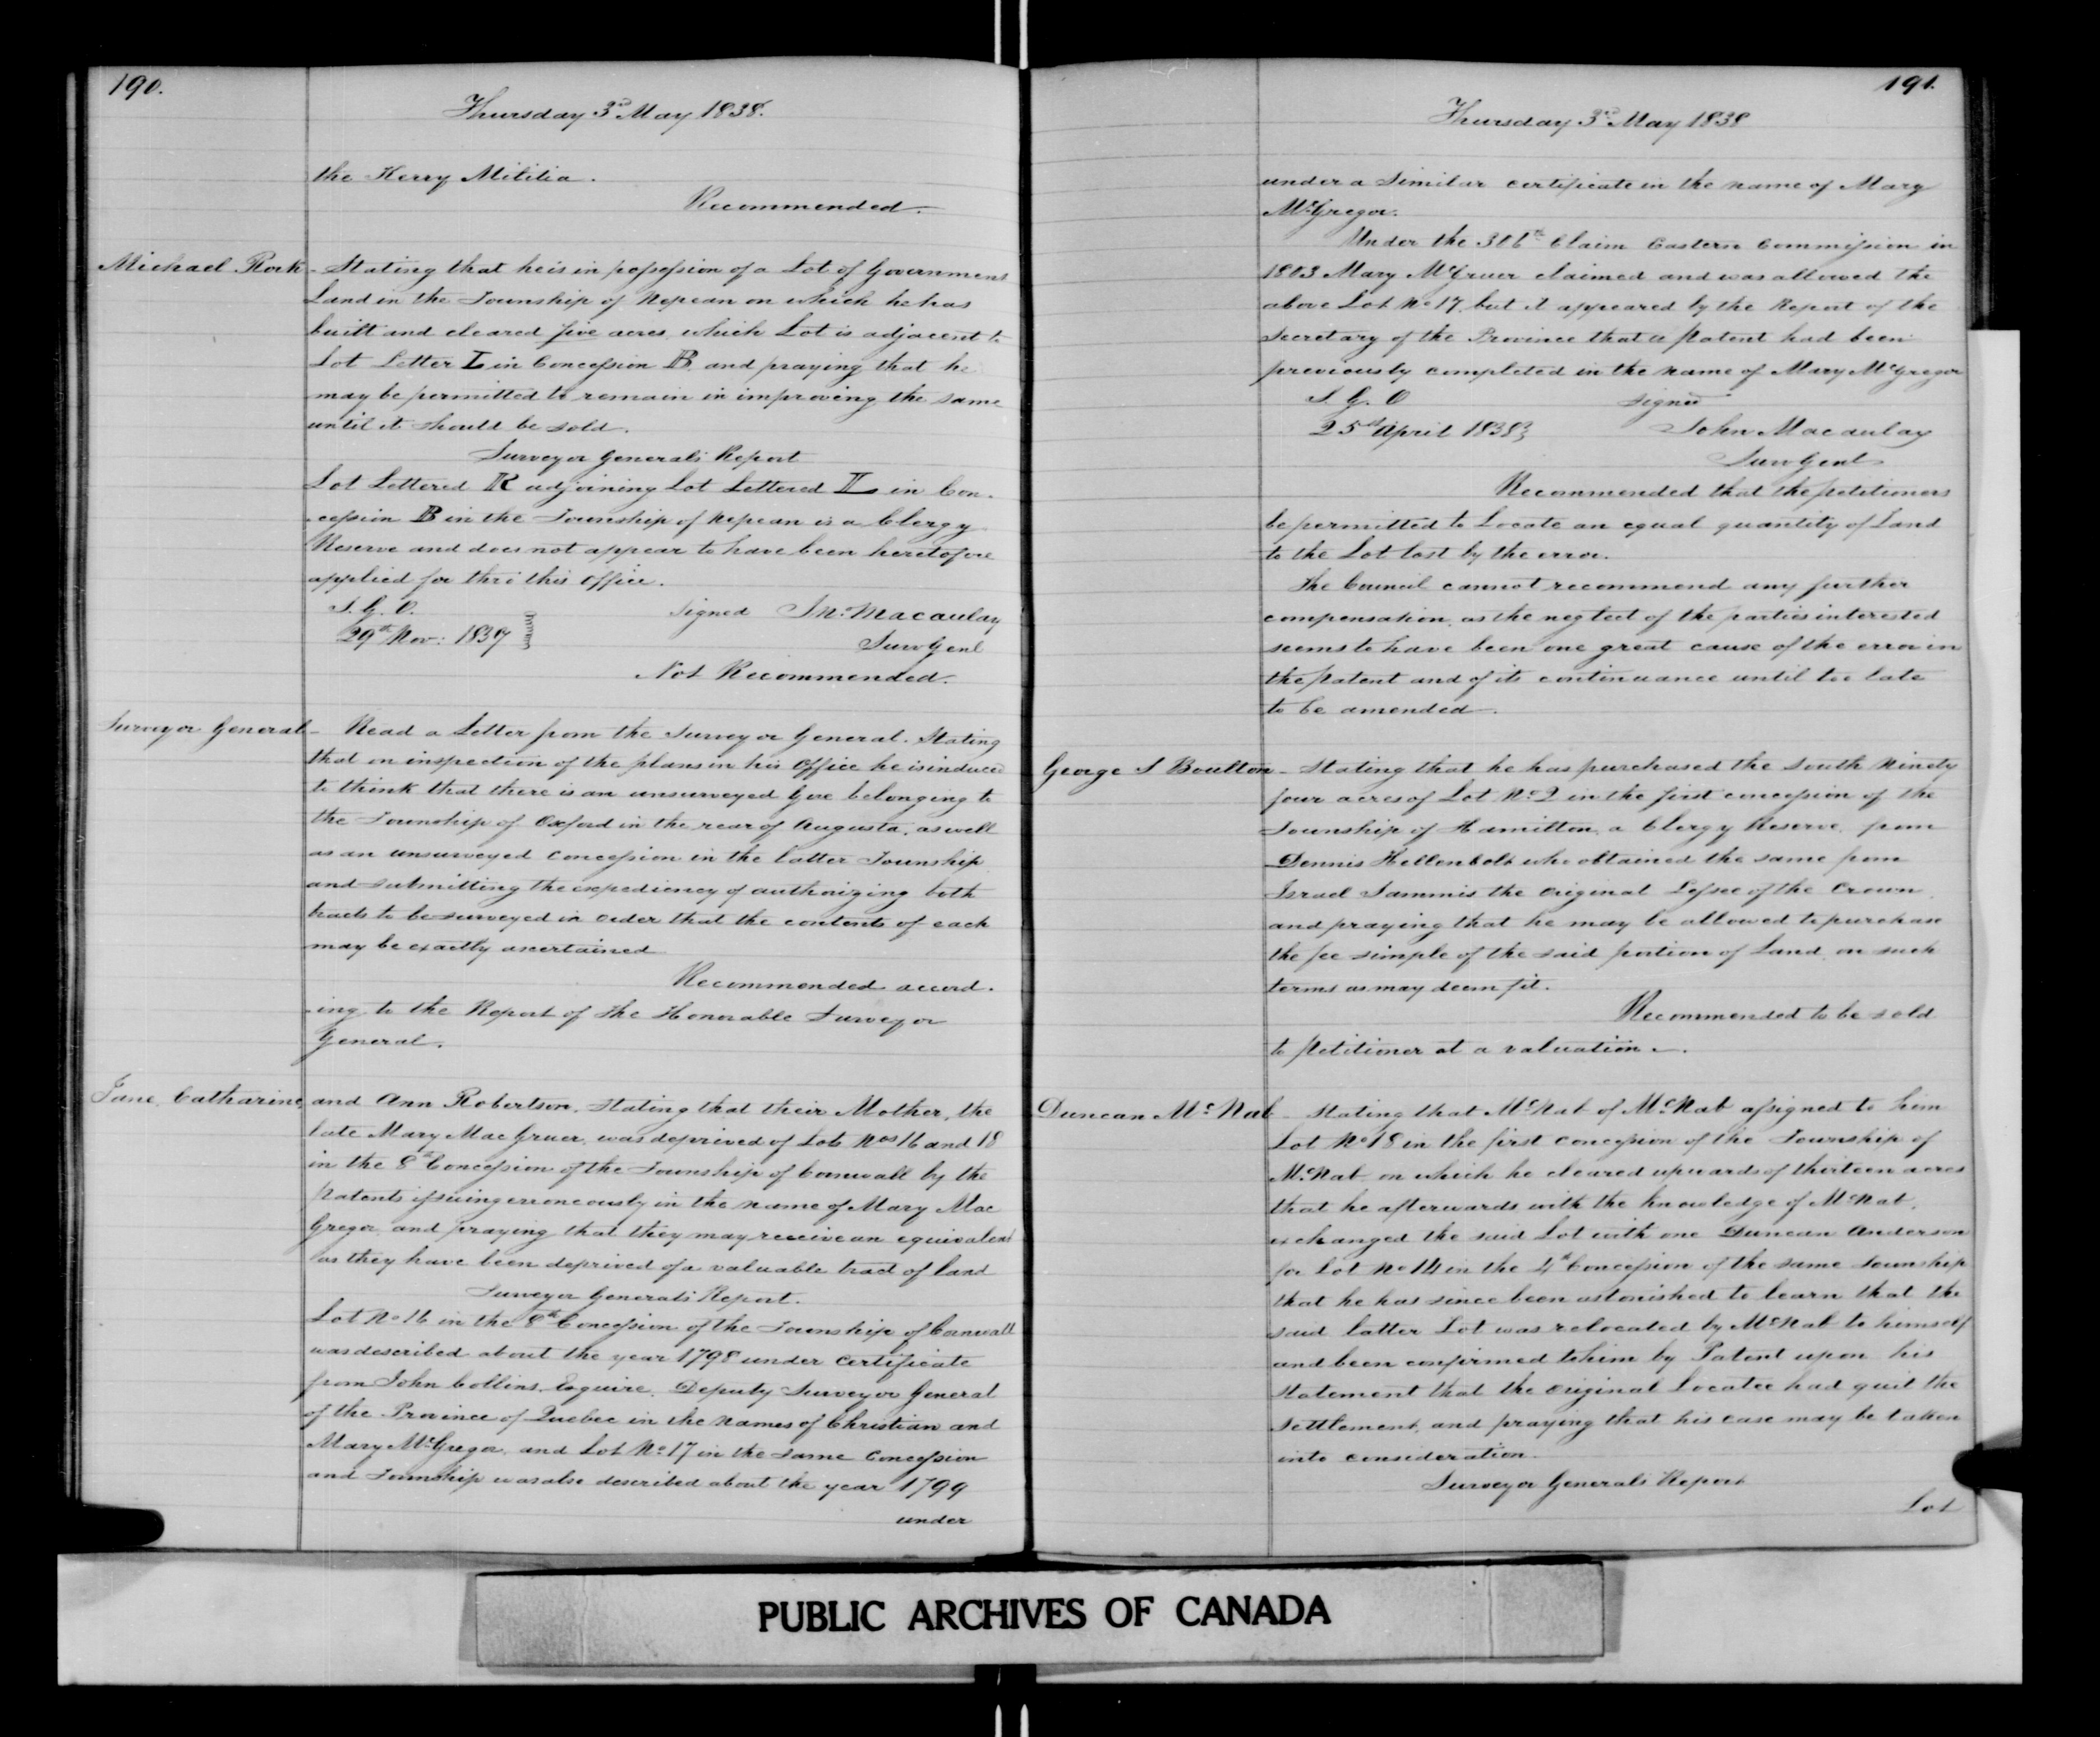 190.
Thursday 3rd May 1838.
the Kerry Militia.
Recommended.
Michael Rork - Stating that he is in possession of a Lot of Government
Land in the Township of Nepean on which he has
built and cleared five acres which Lot is adjacent to
Lot Letter L in Concession B. and praying that he
may be permitted to remain in improving the same
until it should be sold.
Surveyor Generals Report
Lot Lettered K adjoining Lot Lettered L in Con-
-cession B in the Township of Nepean is a Clergy
Reserve and does not appear to have been heretofore
applied for thro this Office.
S. G. O. Signed Jn. Macaulay
29th Nov: 1837 Surv Genl
Not Recommended.
Surveyor General - Read a Letter from the Surveyor General. Stating
that on inspection of the plans in his Office he is induced
to think that there is an unsurveyed Gore belonging to
the Township of Oxford in the rear of Augusta, as well
as an unsurveyed Concession in the latter Township
and submitting the expediency of authorizing both
tracts to be surveyed in order that the contents of each
may be exactly ascertained
Recommended accord-
-ing to the Report of the Honorable Surveyor
General.
Jane, Catharine, and Ann Robertson. Stating that their Mother, the
late Mary MacGruer, was deprived of Lots Nos 16 and 18
in the 8th Concession of the Township of Cornwall by the
Patents issuing erroneously in the name of Mary Mac
Gregor and praying that they may receive an equivalent
as they have been deprived of a valuable tract of land
Surveyor Generals Report.
Lot No 16 in the 8th Concession of the Township of Cornwall
was described about the year 1798 under Certificate
from John Collins, Esquire, Deputy Surveyor General
of the Province of Quebec in the names of Christian and
Mary McGregor, and Lot No. 17 in the same Concession
and Township was also described about the year 1799
under
191.
Thursday 3rd May 1838
under a similar certificate in the name of Mary
McGregor.
Under the 306th Claim Eastern Commission in
1803 Mary McGruer claimed and was allowed the
above Lot No 17, but it appeared by the Report of the
Secretary of the Province that a Patent had been
previously completed in the name of Mary McGregor
S. G. O Signed
25th April 1838 John Macaulay
Surv Genl
Recommended that the petitioners
be permitted to Locate an equal quantity of Land
to the Lot lost by the error.
The Council cannot recommend any further
compensation, as the neglect of the parties interested
seems to have been one great cause of the error in
the Patent and of its continuance until too late
to be amended.
George S Boulton - Stating that he has purchased the South Ninety
four acres of Lot No. 2 in the first concession of the
Township of Hamilton, a Clergy Reserve, from
Dennis who obtained the same from
Israel Tammis the Original Lessee of the Crown
and praying that he may be allowed to purchase
the fee simple of the said portion of Land on such
terms as may deem fit.
Recommended to be sold
to Petitioner at a valuation.
Duncan McNab - Stating that McNab of McNab assigned to him
Lot No 18 in the first concession of the Township of
McNab on which he cleared upwards of thirteen acres
that he afterwards with the knowledge of McNab,
exchanged the said Lot with one Duncan Anderson
for Lot No 14 in the 4th Concession of the same Township
that he has since been astonished to learn that the
said latter Lot was relocated by McNab to himself
and been confirmed to him by Patent upon his
statement that the original Locatee had quit the
Settlement, and praying that his case may be taken
into consideration.
Surveyor Generals Report
Lot
PUBLIC ARCHIVES OF CANADA